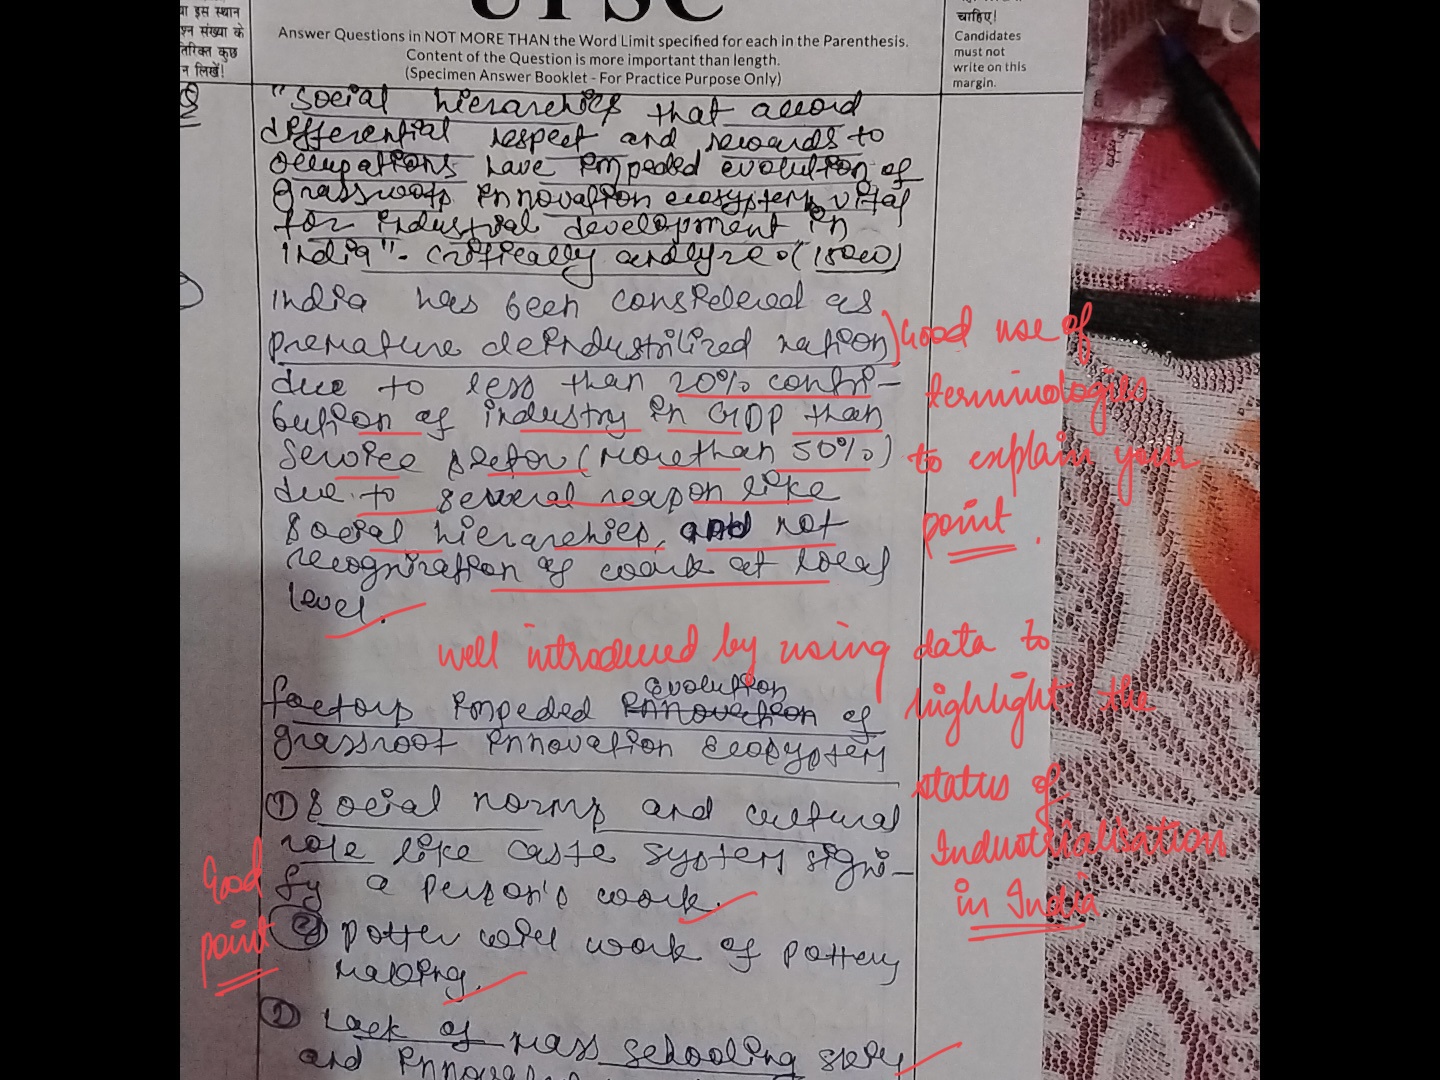 UPSC
Answer Questions in NOT MORE THAN the Word Limit specified for each in the Parenthesis.
Content of the Question is more important than length.
(Specimen Answer Booklet - For Practice Purpose Only)
या इस स्थान
श्न संख्या के
तिरिक्त कुछ
न लिखें!
चाहिए!
Candidates
must not
write on this
margin.
Q
"Social hierarchies that accord
differential respect and rewards to
occupations have impeded evolution of
grassroots innovation ecosystem vital
for industrial development in
India". critically analyze.
India has been considered as
premature deindustrilized nation
due to less than 20% contri-
bution of industry in GDP than
Service sector (more than 50%)
due to several reason like
Social hierarchies, and not
recognization of work at local
level.
Good use of
terminologies
to explain your
point.
well introduced by using data to
highlight the
status of
Industrialisation
in India
factors impeded innovation evolution of
grassroot innovation Ecosystem
① Social norms and cultural
role like caste system signi-
fy a person's work.
Good
point
potter will work of pottery
making.
② Lack of mass schooling
and